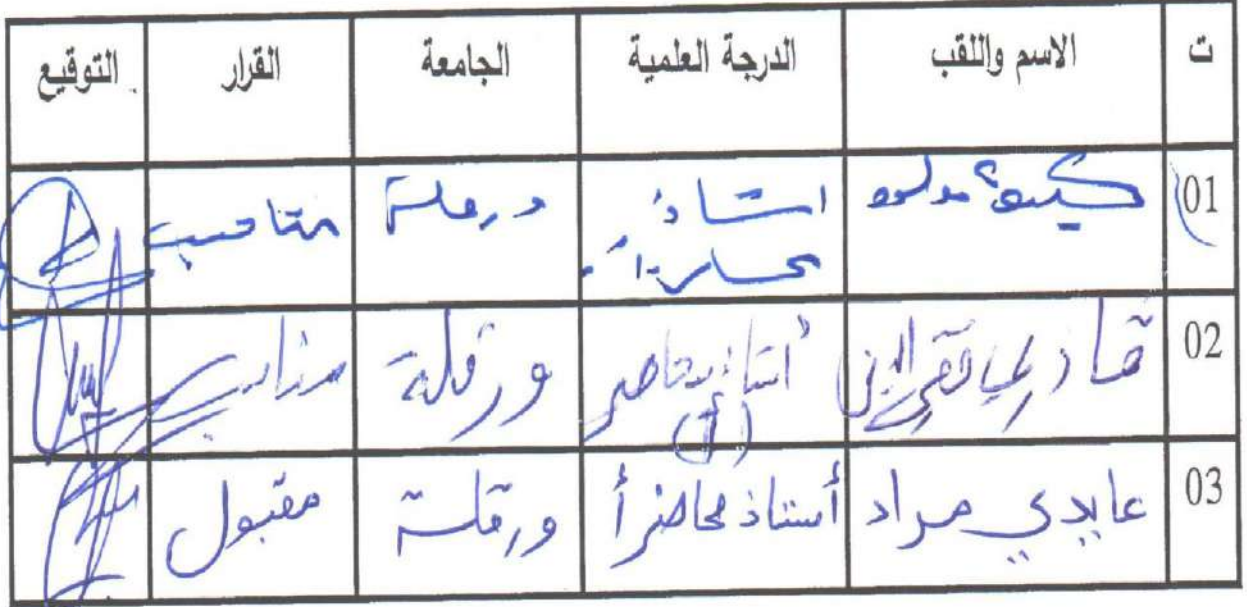 ت الاسم واللقب الدرجة العلمية الجامعة القرار التوقيع
01 استاذ ورقلة مناسب
02 قادري أستاذ محاضر (أ) ورقلة مناسب
03 عابدي مراد أستاذ محاضر أ ورقلة مقبول